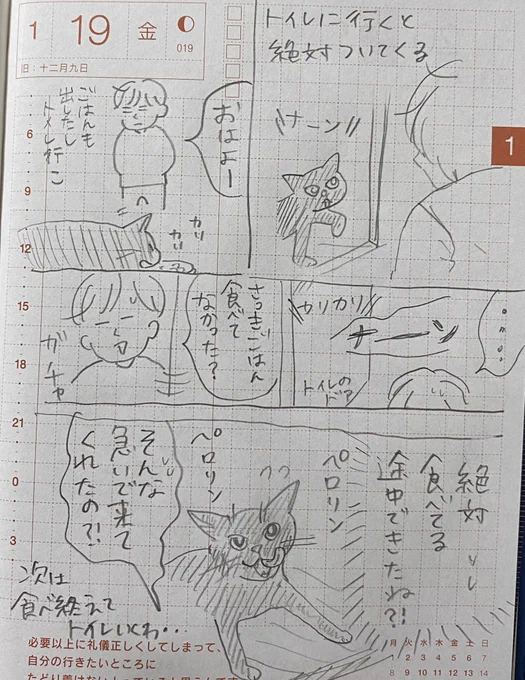 1 19 金
019
旧：十二月九日
トイレに行くと
絶対ついてくる
おはよー
ごはんも
出したし
トイレ行こ
カリ
カリ
\\ナーン//
ガチャ
さっきごはん
食べて
なかった？
カリカリ
ナーン
トイレの
ドア
……
絶対
食べてる
途中できたね?!
ペロリン
ペロリン
そんな
急いで来て
くれたの?!
次は
食べ終えて
トイレいくわ・・
6
9
12
15
18
21
0
3
1
必要以上に礼儀正しくしてしまって、
自分の行きたいところに
月 火 水 木 金 土 日
1 2 3 4 5 6 7
8 9 10 11 12 13 14